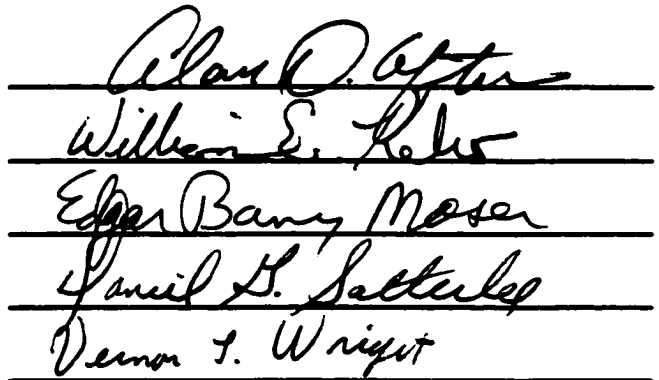 Alan D. Afton
William E. Kelso
Edgar Barry Moser
Daniel G. Satterlee
Vernon L. Wright